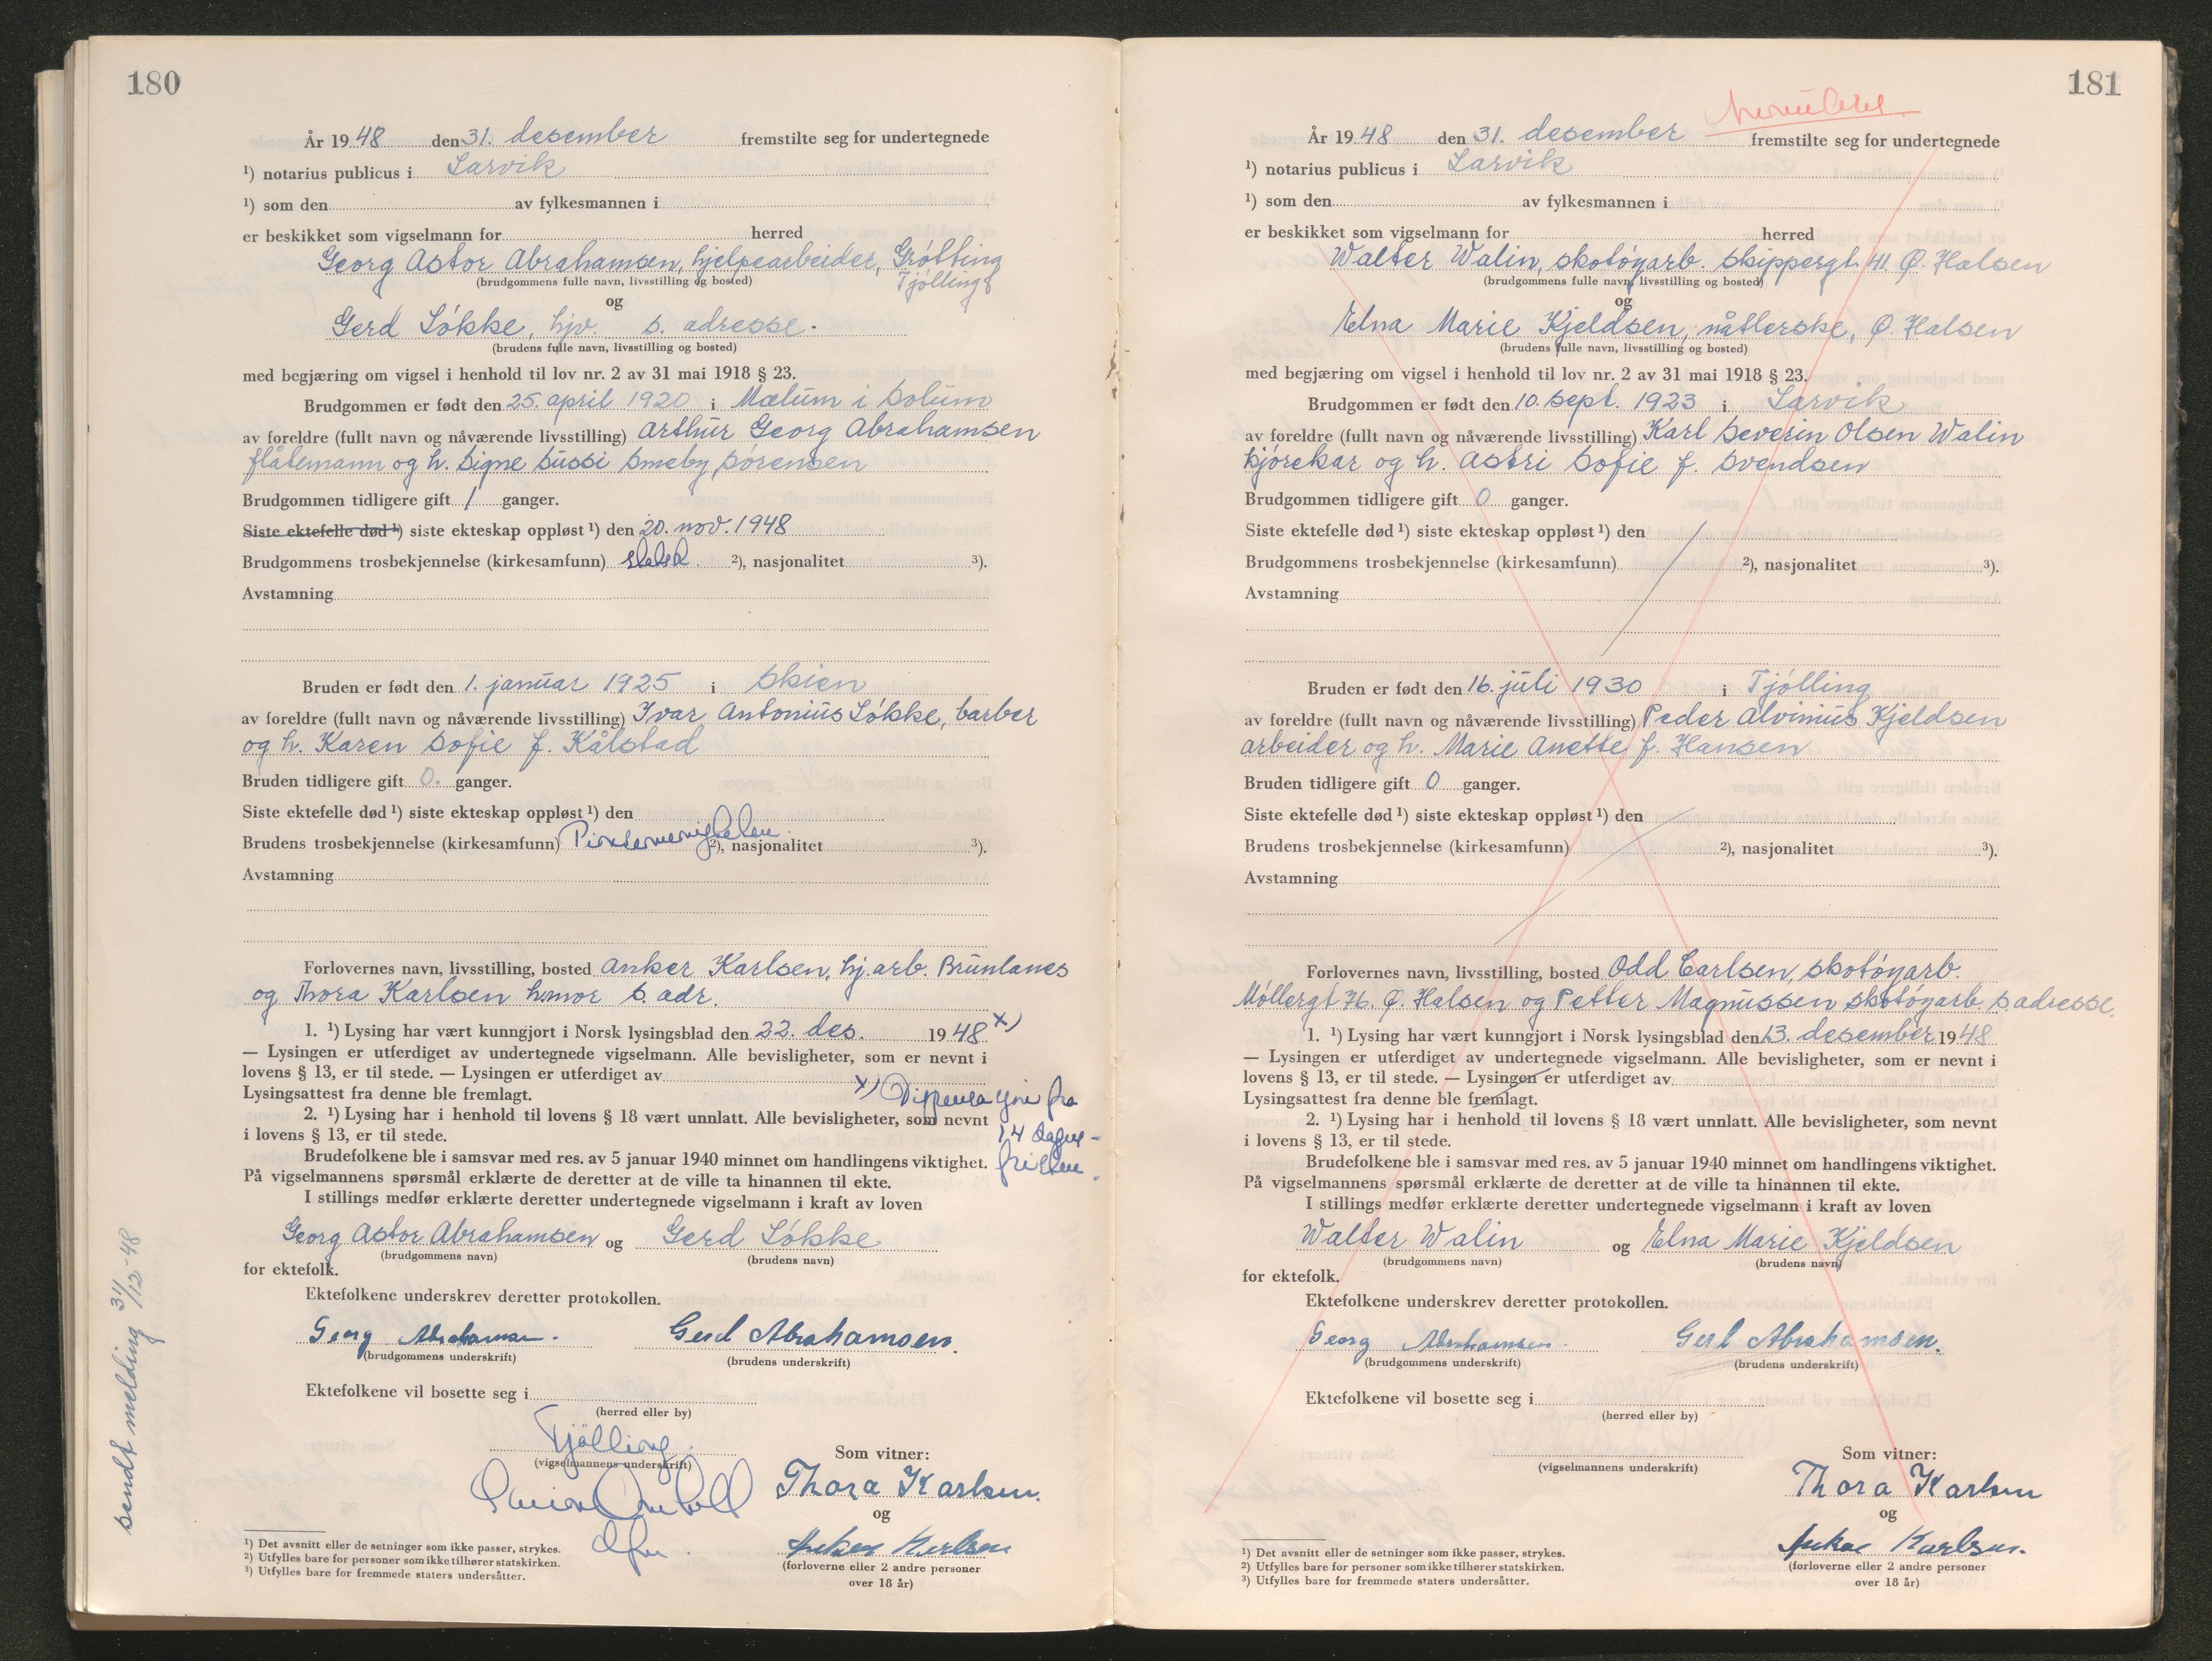 180
År 19 48 den 31. desember fremstilte seg for undertegnede
¹) notarius publicus i Larvik
¹) som den av fylkesmannen i
er beskikket som vigselmann for herred
Georg Astor Abrahamsen, hjelpearbeider, Grótting
Tjólling
(brudgommens fulle navn, livsstilling og bosted)
og
Gerd Lókke, hjv. s. adresse.
(brudens fulle navn, livsstilling og bosted)
med begjæring om vigsel i henhold til lov nr. 2 av 31 mai 1918 § 23.
Brudgommen er født den 25. april 1920 i Mælum i Solum
av foreldre (fullt navn og nåværende livsstilling) Arthur Georg Abrahamsen
flåtemann og h. Signe Sussi Smeby Sórensen
Brudgommen tidligere gift 1 ganger.
Siste ektefelle død ¹) siste ekteskap oppløst ¹) den 20. nov. 1948
Brudgommens trosbekjennelse (kirkesamfunn) ²), nasjonalitet ³).
Avstamning
Bruden er født den 1. januar 1925 i Skien
av foreldre (fullt navn og nåværende livsstilling) Ivar Antonius Lókke, barber
og h. Karen Sofie f. Kålstad
Bruden tidligere gift 0. ganger.
Siste ektefelle død ¹) siste ekteskap oppløst ¹) den
Brudens trosbekjennelse (kirkesamfunn) ²), nasjonalitet ³).
Avstamning
Forlovernes navn, livsstilling, bosted Anker Karlsen, hj.arb. Brunlanes
og Thora Karlsen h.mor s. adr.
1. ¹) Lysing har vært kunngjort i Norsk lysingsblad den 22. des. 19 48 x)
— Lysingen er utferdiget av undertegnede vigselmann. Alle bevisligheter, som er nevnt i
lovens § 13, er til stede. — Lysingen er utferdiget av
x) fra
Lysingsattest fra denne ble fremlagt.
2. ¹) Lysing har i henhold til lovens § 18 vært unnlatt. Alle bevisligheter, som nevnt
14 dagers-
i lovens § 13, er til stede.
Brudefolkene ble i samsvar med res. av 5 januar 1940 minnet om handlingens viktighet.
fristen.
På vigselmannens spørsmål erklærte de deretter at de ville ta hinannen til ekte.
I stillings medfør erklærte deretter undertegnede vigselmann i kraft av loven
Georg Astor Abrahamsen og Gerd Lókke
(brudgommens navn) (brudens navn)
for ektefolk.
Ektefolkene underskrev deretter protokollen.
Georg Abrahamsen. Gerd Abrahamsen.
(brudgommens underskrift) (brudens underskrift)
Ektefolkene vil bosette seg i
(herred eller by)
Tjølling.
(vigselmannens underskrift)
Som vitner:
Thora Karlsen.
og
Anker Karlsen
(forloverne eller 2 andre personer
over 18 år)
¹) Det avsnitt eller de setninger som ikke passer, strykes.
²) Utfylles bare for personer som ikke tilhører statskirken.
³) Utfylles bare for fremmede staters undersåtter.
sendt melding 31/12-48
181
År 19 48 den 31. desember fremstilte seg for undertegnede
¹) notarius publicus i Larvik
¹) som den av fylkesmannen i
er beskikket som vigselmann for herred
Walter Walin, skotóyarb. Skippergt. 41 Ø. Halsen
(brudgommens fulle navn, livsstilling og bosted)
og
Elna Marie Kjeldsen, nåtlerske, Ø. Halsen
(brudens fulle navn, livsstilling og bosted)
med begjæring om vigsel i henhold til lov nr. 2 av 31 mai 1918 § 23.
Brudgommen er født den 10. sept. 1923 i Larvik
av foreldre (fullt navn og nåværende livsstilling) Karl Severin Olsen Walin
kjórekar og h. Astri Sofie f. Svendsen
Brudgommen tidligere gift 0 ganger.
Siste ektefelle død ¹) siste ekteskap oppløst ¹) den
Brudgommens trosbekjennelse (kirkesamfunn) ²), nasjonalitet ³).
Avstamning
Bruden er født den 16. juli 1930 i Tjólling
av foreldre (fullt navn og nåværende livsstilling) Peder Alvinius Kjeldsen
arbeider og h. Marie Anette f. Hansen
Bruden tidligere gift 0 ganger.
Siste ektefelle død ¹) siste ekteskap oppløst ¹) den
Brudens trosbekjennelse (kirkesamfunn) ²), nasjonalitet ³).
Avstamning
Forlovernes navn, livsstilling, bosted Odd Carlsen, skotóyarb.
Móllergt 76. Ø. Halsen og Petter Magnussen skotóyarb. s. adresse.
1. ¹) Lysing har vært kunngjort i Norsk lysingsblad den 13. desember 19 48
— Lysingen er utferdiget av undertegnede vigselmann. Alle bevisligheter, som er nevnt i
lovens § 13, er til stede. — Lysingen er utferdiget av
Lysingsattest fra denne ble fremlagt.
2. ¹) Lysing har i henhold til lovens § 18 vært unnlatt. Alle bevisligheter, som nevnt
i lovens § 13, er til stede.
Brudefolkene ble i samsvar med res. av 5 januar 1940 minnet om handlingens viktighet.
På vigselmannens spørsmål erklærte de deretter at de ville ta hinannen til ekte.
I stillings medfør erklærte deretter undertegnede vigselmann i kraft av loven
Walter Walin og Elna Marie Kjeldsen
(brudgommens navn) (brudens navn)
for ektefolk.
Ektefolkene underskrev deretter protokollen.
Georg Abrahamsen. Gerd Abrahamsen.
(brudgommens underskrift) (brudens underskrift)
Ektefolkene vil bosette seg i
(herred eller by)
(vigselmannens underskrift)
Som vitner:
Thora Karlsen
og
Anker Karlsen.
(forloverne eller 2 andre personer
over 18 år)
¹) Det avsnitt eller de setninger som ikke passer, strykes.
²) Utfylles bare for personer som ikke tilhører statskirken.
³) Utfylles bare for fremmede staters undersåtter.